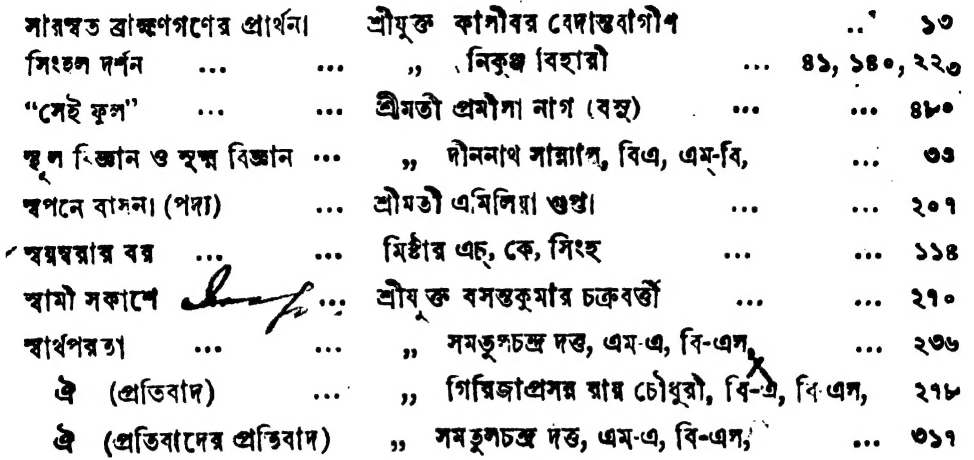 সারস্বত ব্রাহ্মণগণের প্রার্থনা শ্রীযুক্ত কালীবর বেদান্তবাগীশ ... ১৩
সিংহল দর্শন ... ... ,, নিকুঞ্জ বিহারী ... ৪১, ১৪০, ২২৩
“সেই ফুল” ... ... শ্রীমতী প্রমীলা নাগ (বসু) ... ... ৪৮০
স্থূল বিজ্ঞান ও সূক্ষ্ম বিজ্ঞান ... ,, দীননাথ সান্ন্যাল, বিএ, এম-বি, ... ৩৩
স্বপনে বাসনা (পদ্য) ... শ্রীমতী এমিলিয়া গুপ্তা ... ... ২০৭
স্বয়ম্বরার বর ... ... মিষ্টার এচ্, কে, সিংহ ... ... ১১৪
স্বামী সকাশে ... শ্রীযুক্ত বসন্তকুমার চক্রবর্ত্তী ... ... ২৭০
স্বার্থপরতা ... ... ,, সমতুলচন্দ্র দত্ত, এম-এ, বি-এল, ... ২৩৬
ঐ (প্রতিবাদ) ... ,, গিরিজাপ্রসন্ন রায় চৌধুরী, বি-এ, বি-এল, ২৭৮
ঐ (প্রতিবাদের প্রতিবাদ) ,, সমতুলচন্দ্র দত্ত, এম-এ, বি-এল, ... ৩১৭